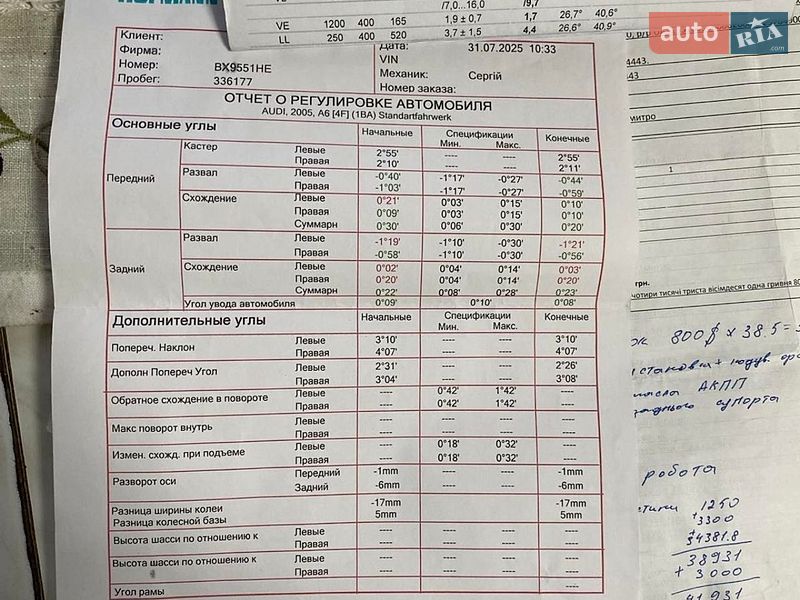 /7,0...16,0 /9,7
VE 1200 400 165 1,9 ± 0,7 1,7 26,7° 40,6°
LL 250 400 520 3,7 ± 1,5 4,4 26,6° 40,9°
auto RIA .com
Клиент:
Фирма:
Номер: BX9551HE
Пробег: 336177
Дата: 31.07.2025 10:33
VIN
Механик: Сергій
Номер заказа:
ОТЧЕТ О РЕГУЛИРОВКЕ АВТОМОБИЛЯ
AUDI, 2005, A6 [4F] (1BA) Standartfahrwerk
Основные углы Начальные Спецификации Конечные
Мин. Макс.
Передний
Кастер Левые 2°55' ---- ---- 2°55'
Правая 2°10' ---- ---- 2°11'
Развал Левые -0°40' -1°17' -0°27' -0°44'
Правая -1°03' -1°17' -0°27' -0°59'
Схождение Левые 0°21' 0°03' 0°15' 0°10'
Правая 0°09' 0°03' 0°15' 0°10'
Суммарн 0°30' 0°06' 0°30' 0°20'
Задний
Развал Левые -1°19' -1°10' -0°30' -1°21'
Правая -0°58' -1°10' -0°30' -0°56'
Схождение Левые 0°02' 0°04' 0°14' 0°03'
Правая 0°20' 0°04' 0°14' 0°20'
Суммарн 0°22' 0°08' 0°28' 0°23'
Угол увода автомобиля 0°09' 0°10' 0°08'
Дополнительные углы Начальные Спецификации Конечные
Мин. Макс.
Попереч. Наклон Левые 3°10' ---- ---- 3°10'
Правая 4°07' ---- ---- 4°07'
Дополн Попереч Угол Левые 2°31' ---- ---- 2°26'
Правая 3°04' ---- ---- 3°08'
Обратное схождение в повороте Левые ---- 0°42' 1°42' ----
Правая ---- 0°42' 1°42' ----
Макс поворот внутрь Левые ---- ---- ---- ----
Правая ---- ---- ---- ----
Измен. схожд. при подъеме Левые ---- 0°18' 0°32' ----
Правая ---- 0°18' 0°32' ----
Разворот оси Передний -1mm ---- ---- -1mm
Задний -6mm ---- ---- -6mm
Разница ширины колеи -17mm -17mm
Разница колесной базы 5mm 5mm
Высота шасси по отношению к Левые ---- ---- ---- ----
Правая ---- ---- ---- ----
Высота шасси по отношению к Левые ---- ---- ---- ----
Правая ---- ---- ---- ----
Угол рамы ----
4443.
митро
1
грн.
чотири тисячі триста вісімдесят одна гривня 80
800$ x 38.5 =
масла АКПП
супорта
робота
1250
+3300
34381.8
38931
+ 3000
41931